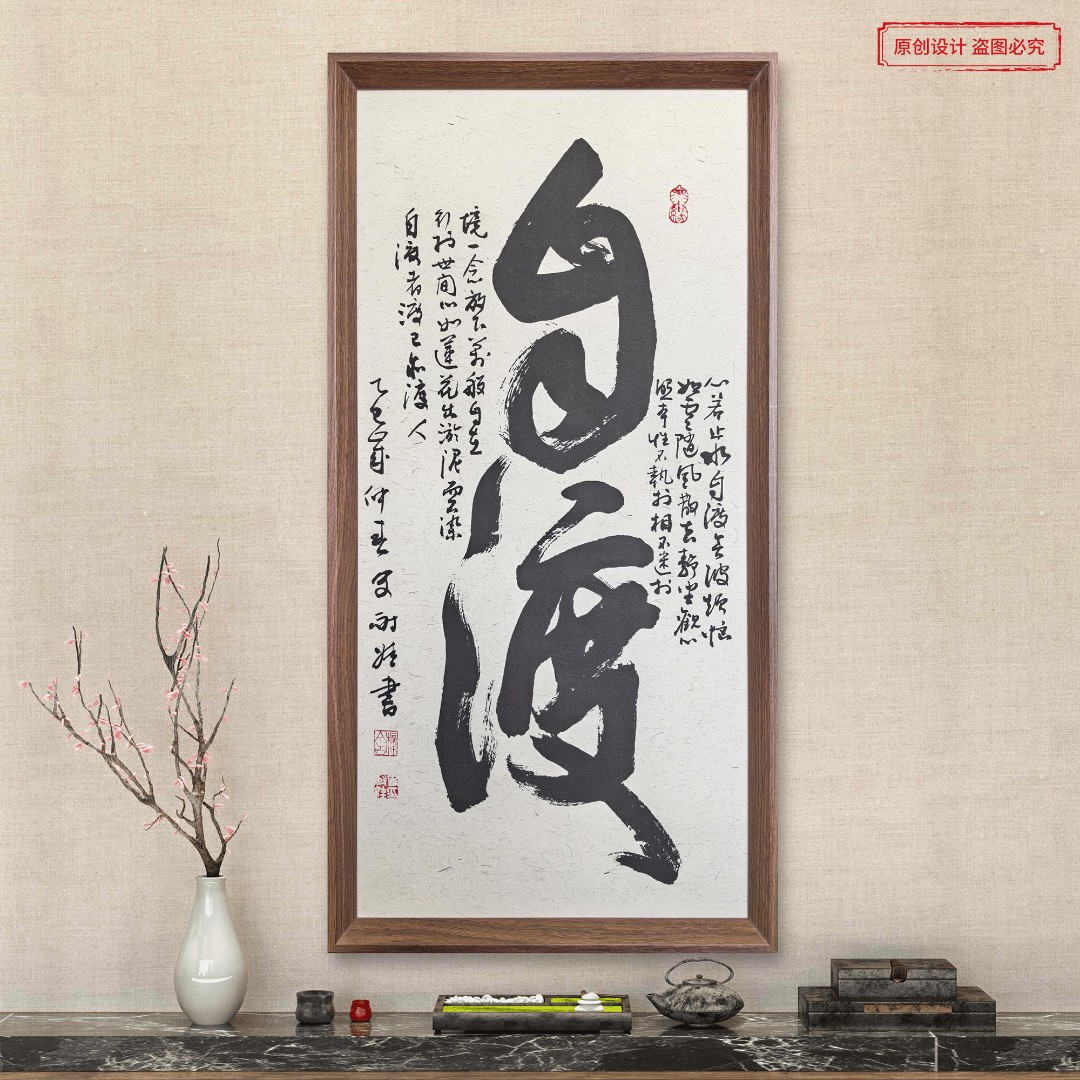 原创设计 盗图必究
自渡
心若止水自渡无波烦恼
如云随风散去静坐观心
照本性不執於相不迷於
境一念放下万般自在
行於世间心如莲花出淤泥而不染
自渡者渡己亦渡人
乙巳年仲春
書